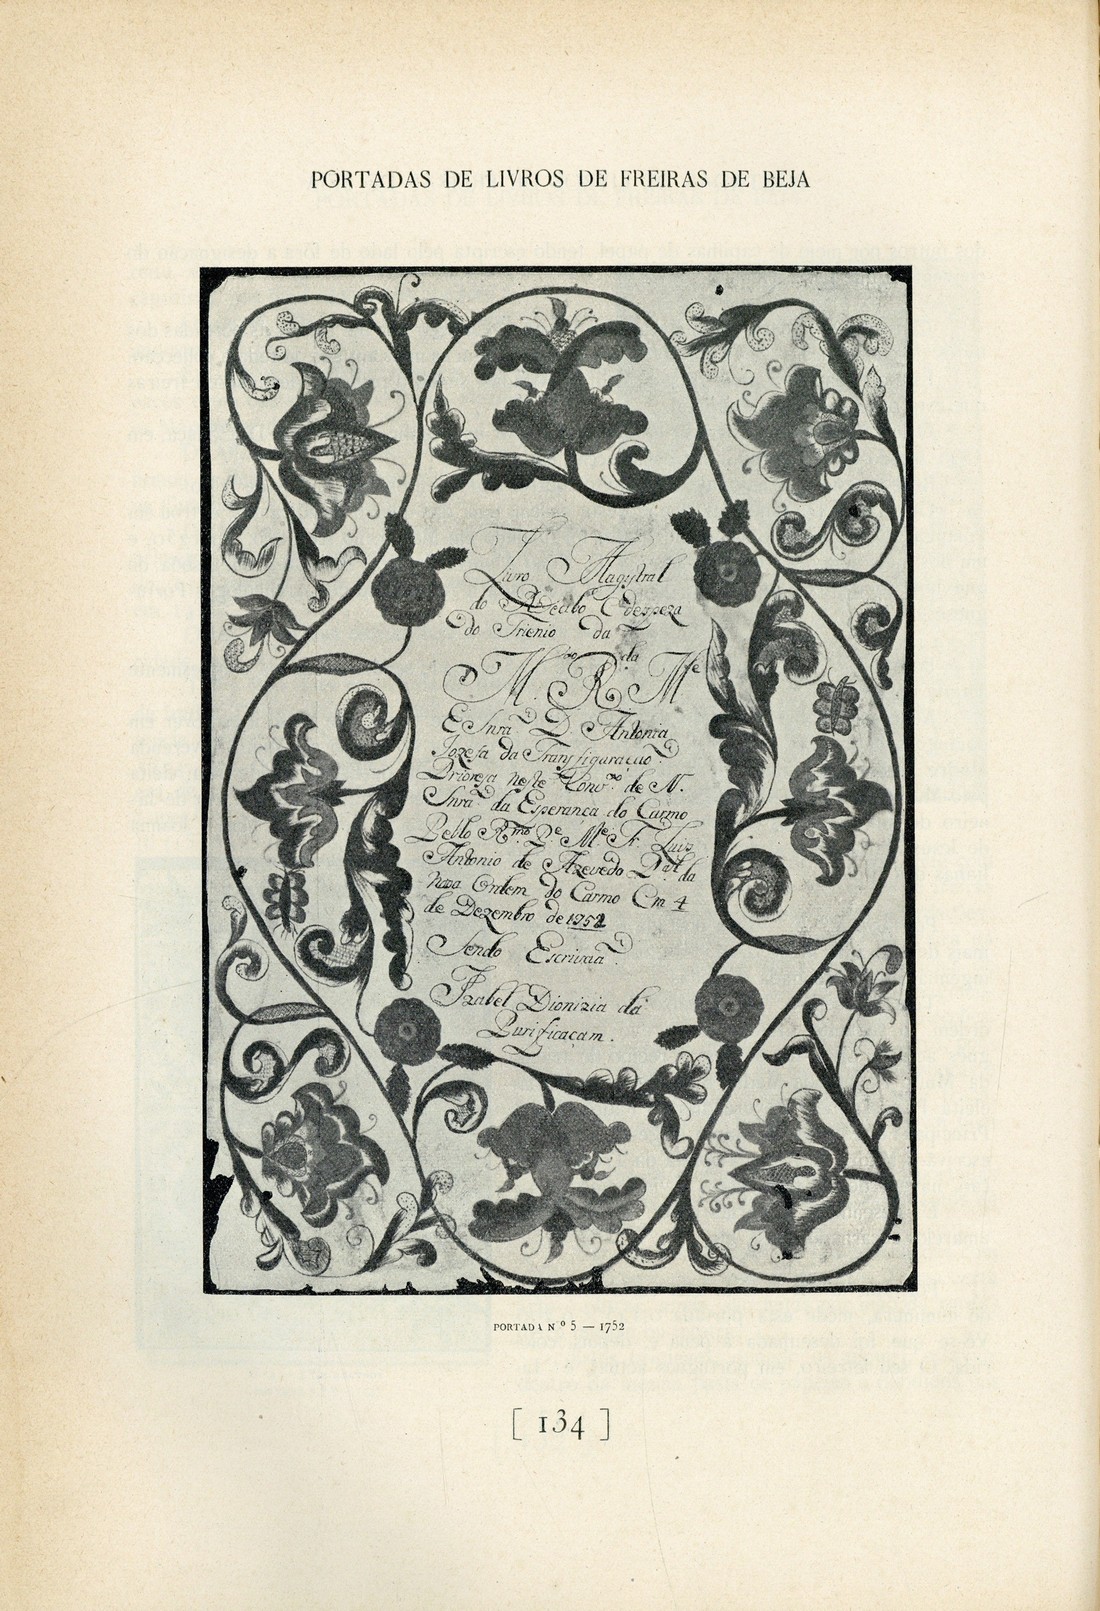 PORTADAS DE LIVROS DE FREIRAS DE BEJA
Livro Magistral
do Recibo E despeza
do Trienio da
M.to R.da M.e
E Snra D. Antonia
Jozefa da Transfiguracao.
Prioresa neste Conv.to de N.
Snra da Esperanca do Carmo
Pello R.mo P.e M.e Fr. Luis
Antonio de Azevedo da
Ordem do Carmo Em 4
de Dezembro de 1752
Sendo Escrivaa.
Izabel Dionizia da
Purificacam.
PORTADA Nº 5 — 1752
[ 134 ]